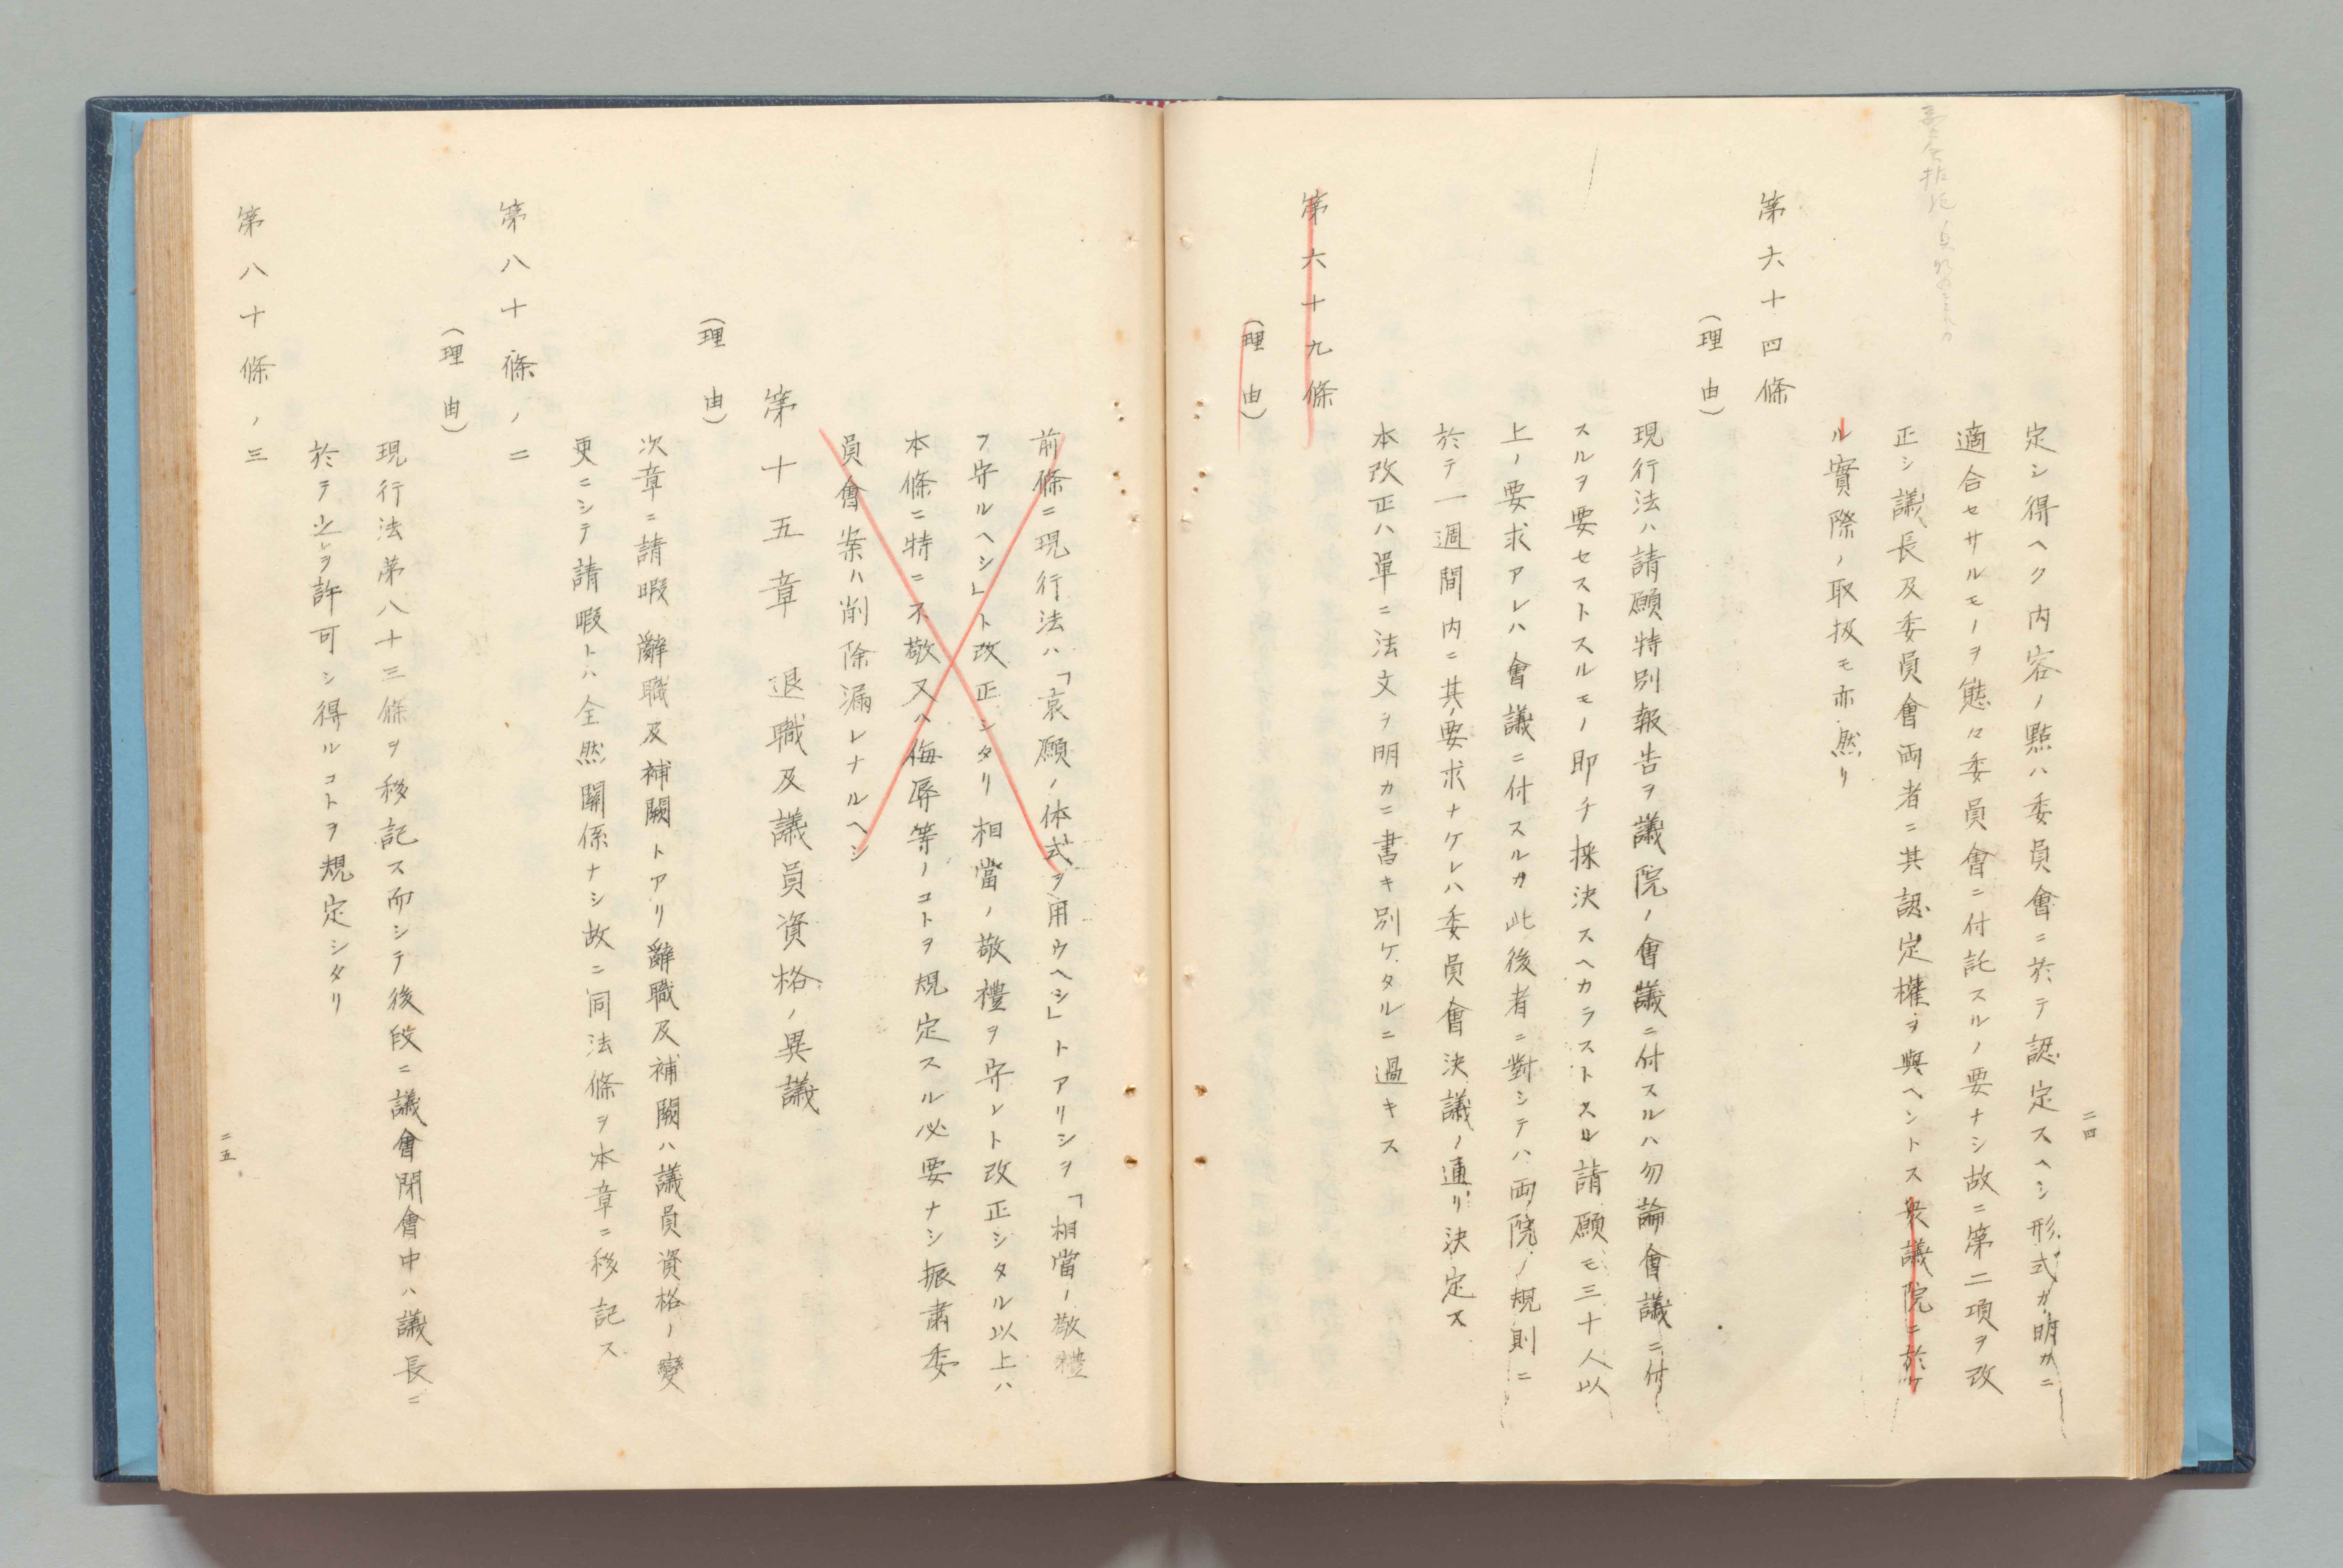 二四
定シ得ヘク内容ノ點ハ委員會ニ於テ認定スヘシ形式カ明カニ
適合セサルモノヲ態々委員會ニ付託スルノ要ナシ故ニ第二項ヲ改
正シ議長及委員會両者ニ其認定權ヲ與ヘントス衆議院ニ於ケ
ル實際ノ取扱モ亦然リ
第六十四條
(理由)
現行法ハ請願特別報告ヲ議院ノ會議ニ付スルハ勿論會議ニ付
スルヲ要セストスルモノ即チ採決スヘカラストスル請願モ三十人以
上ノ要求アレハ會議ニ付スルカ此後者ニ對シテハ両院ノ規則ニ
於テ一週間内ニ其要求ナケレハ委員會決議ノ通リ決定ス
本改正ハ單ニ法文ヲ明カニ書キ別ケタルニ過キス
第六十九條
(理由)
前條ニ現行法ハ「哀願ノ体式ヲ用ウヘシ」トアリシヲ「相當ノ敬禮
ヲ守ルヘシ」ト改正シタリ相當ノ敬禮ヲ守レト改正シタル以上ハ
本條ニ特ニ不敬又ハ侮辱等ノコトヲ規定スル必要ナシ振肅委
員會案ハ削除漏レナルヘシ
第十五章 退職及議員資格ノ異議
(理由)
次章ニ請暇辭職及補闕トアリ辭職及補闕ハ議員資格ノ變
更ニシテ請暇トハ全然關係ナシ故ニ同法條ヲ本章ニ移記ス
第八十條ノ二
(理由)
現行法第八十三條ヲ移記ス而シテ後段ニ議會閉會中ハ議長ニ
於テ之レヲ許可シ得ルコトヲ規定シタリ
第八十條ノ三
二五